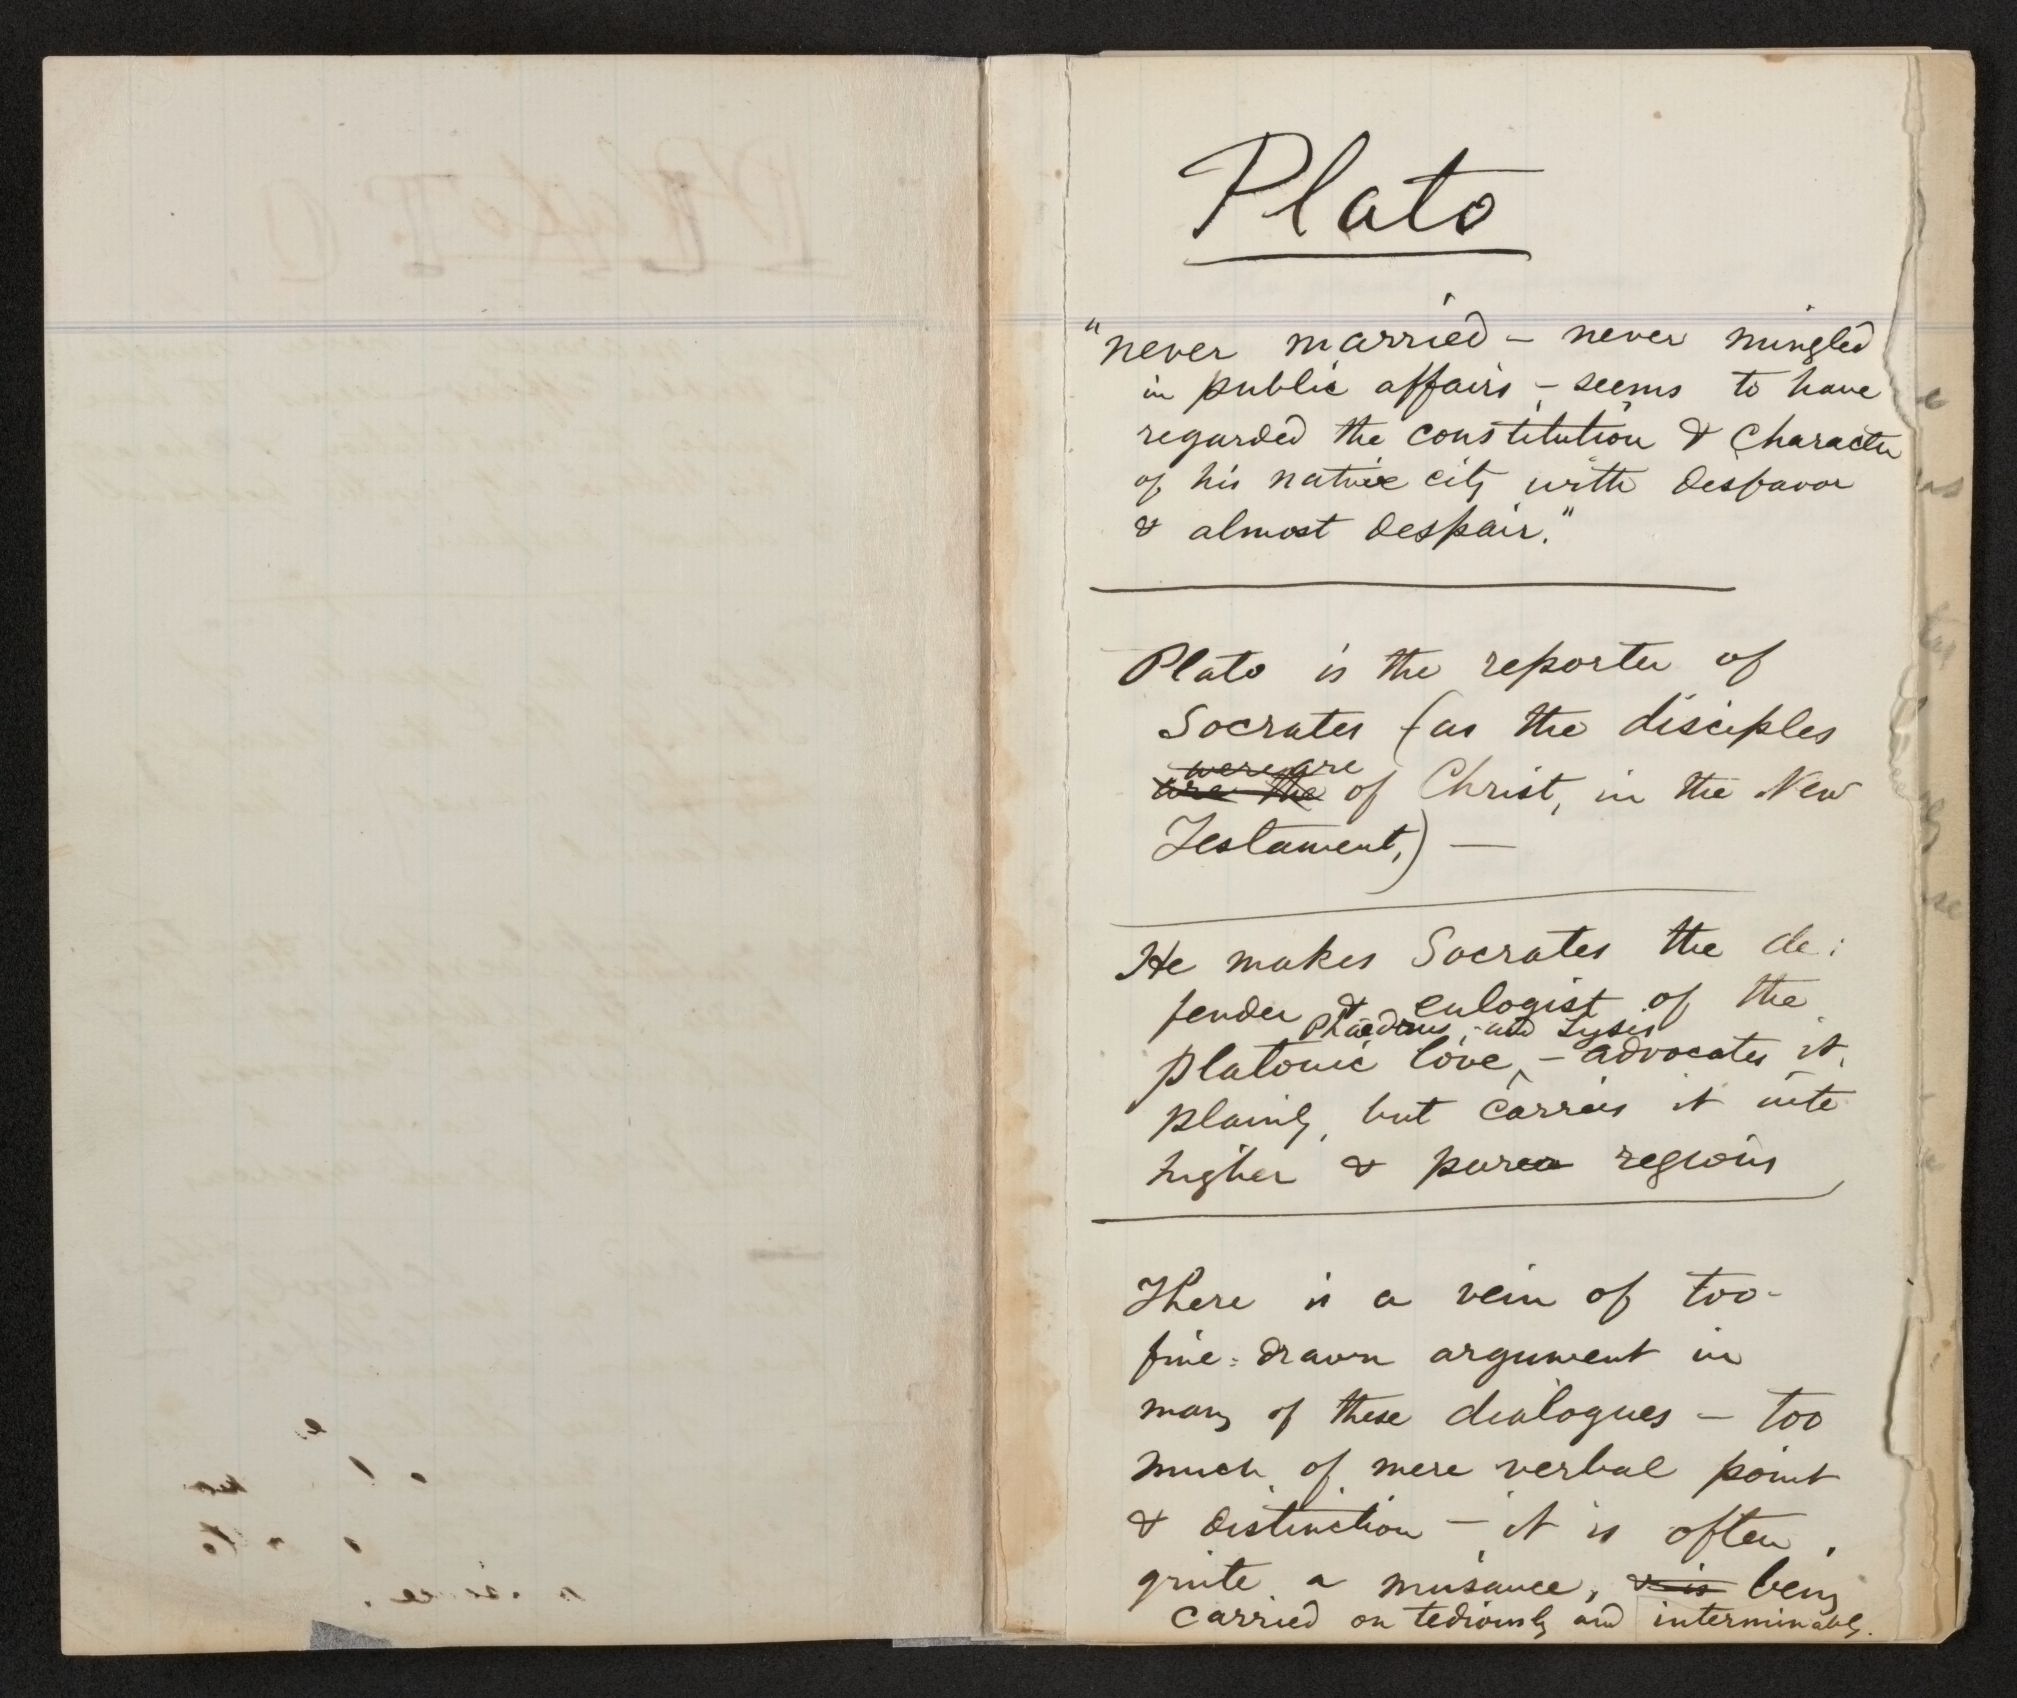 Plato
"never married – never mingled
in public affairs – seems to have
regarded the constitution & character
of his native city with desfavor
& almost despair."
Plato is the reporter of
Socrates (as the disciples
were are
are the of Christ, in the New
Testament,) —
He makes Socrates the de:
fender & eulogist of the
Phaedrus, and Lysis
platonic love, – advocates it
plainly, but carries it into
higher & purer regions
There is a vein of too-
fine-drawn argument in
many of these dialogues – too
much of mere verbal point
& distinction – it is often
quite a nuisance, & is being
carried on tediously and interminably.